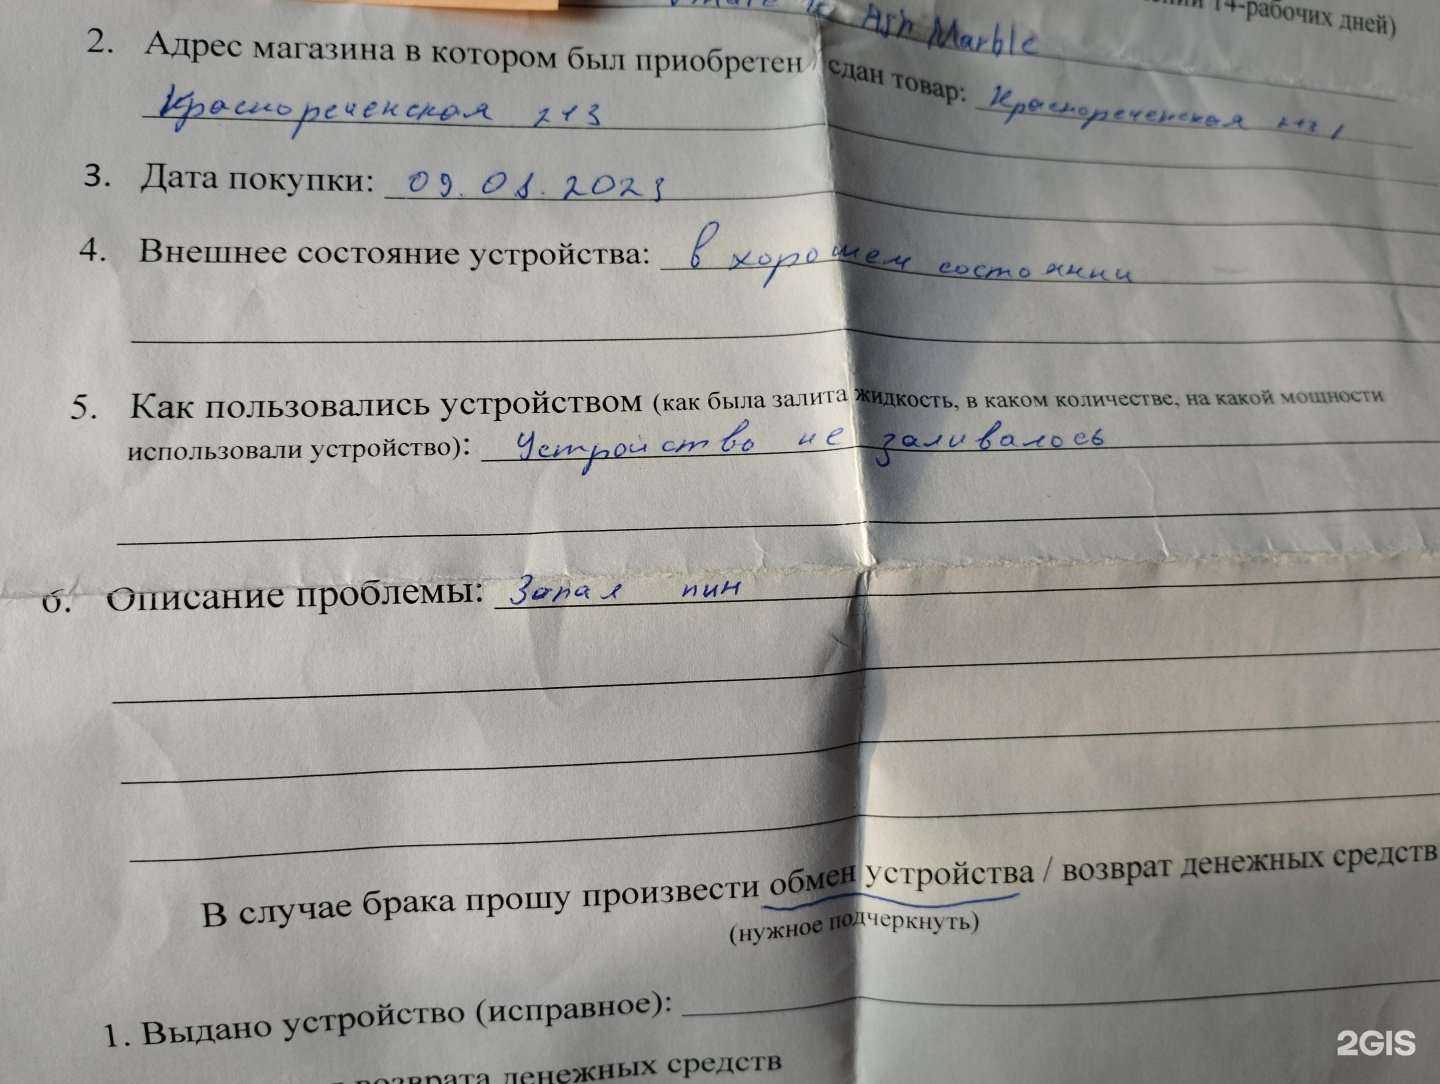 14-рабочих дней)
Ash Marble
2. Адрес магазина в котором был приобретен / сдан товар: Краснореченская
Краснореченская 213
3. Дата покупки: 09.01.2023
4. Внешнее состояние устройства: в хорошем состоянии
5. Как пользовались устройством (как была залита жидкость, в каком количестве, на какой мощности
использовали устройство): Устройство не заливалось
6. Описание проблемы: Запал пин
В случае брака прошу произвести обмен устройства / возврат денежных средств
(нужное подчеркнуть)
1. Выдано устройство (исправное):
возврата денежных средств
2GIS